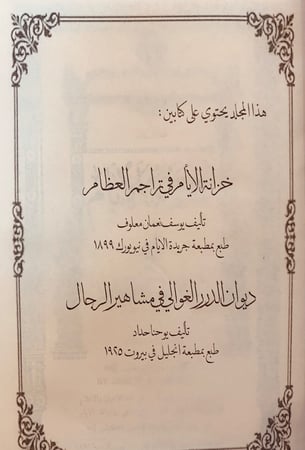 هذا المجلد يحتوي على كتابين :
خزانة الأيام في تراجم العظام
تأليف يوسف نعمان معلوف
طبع بمطبعة جريدة الأيام في نيويورك ١٨٩٩
ديوان الدرر الغوالي في مشاهير الرجال
تأليف يوحنا حداد
طبع بمطبعة انجليل في بيروت ١٩٢٥